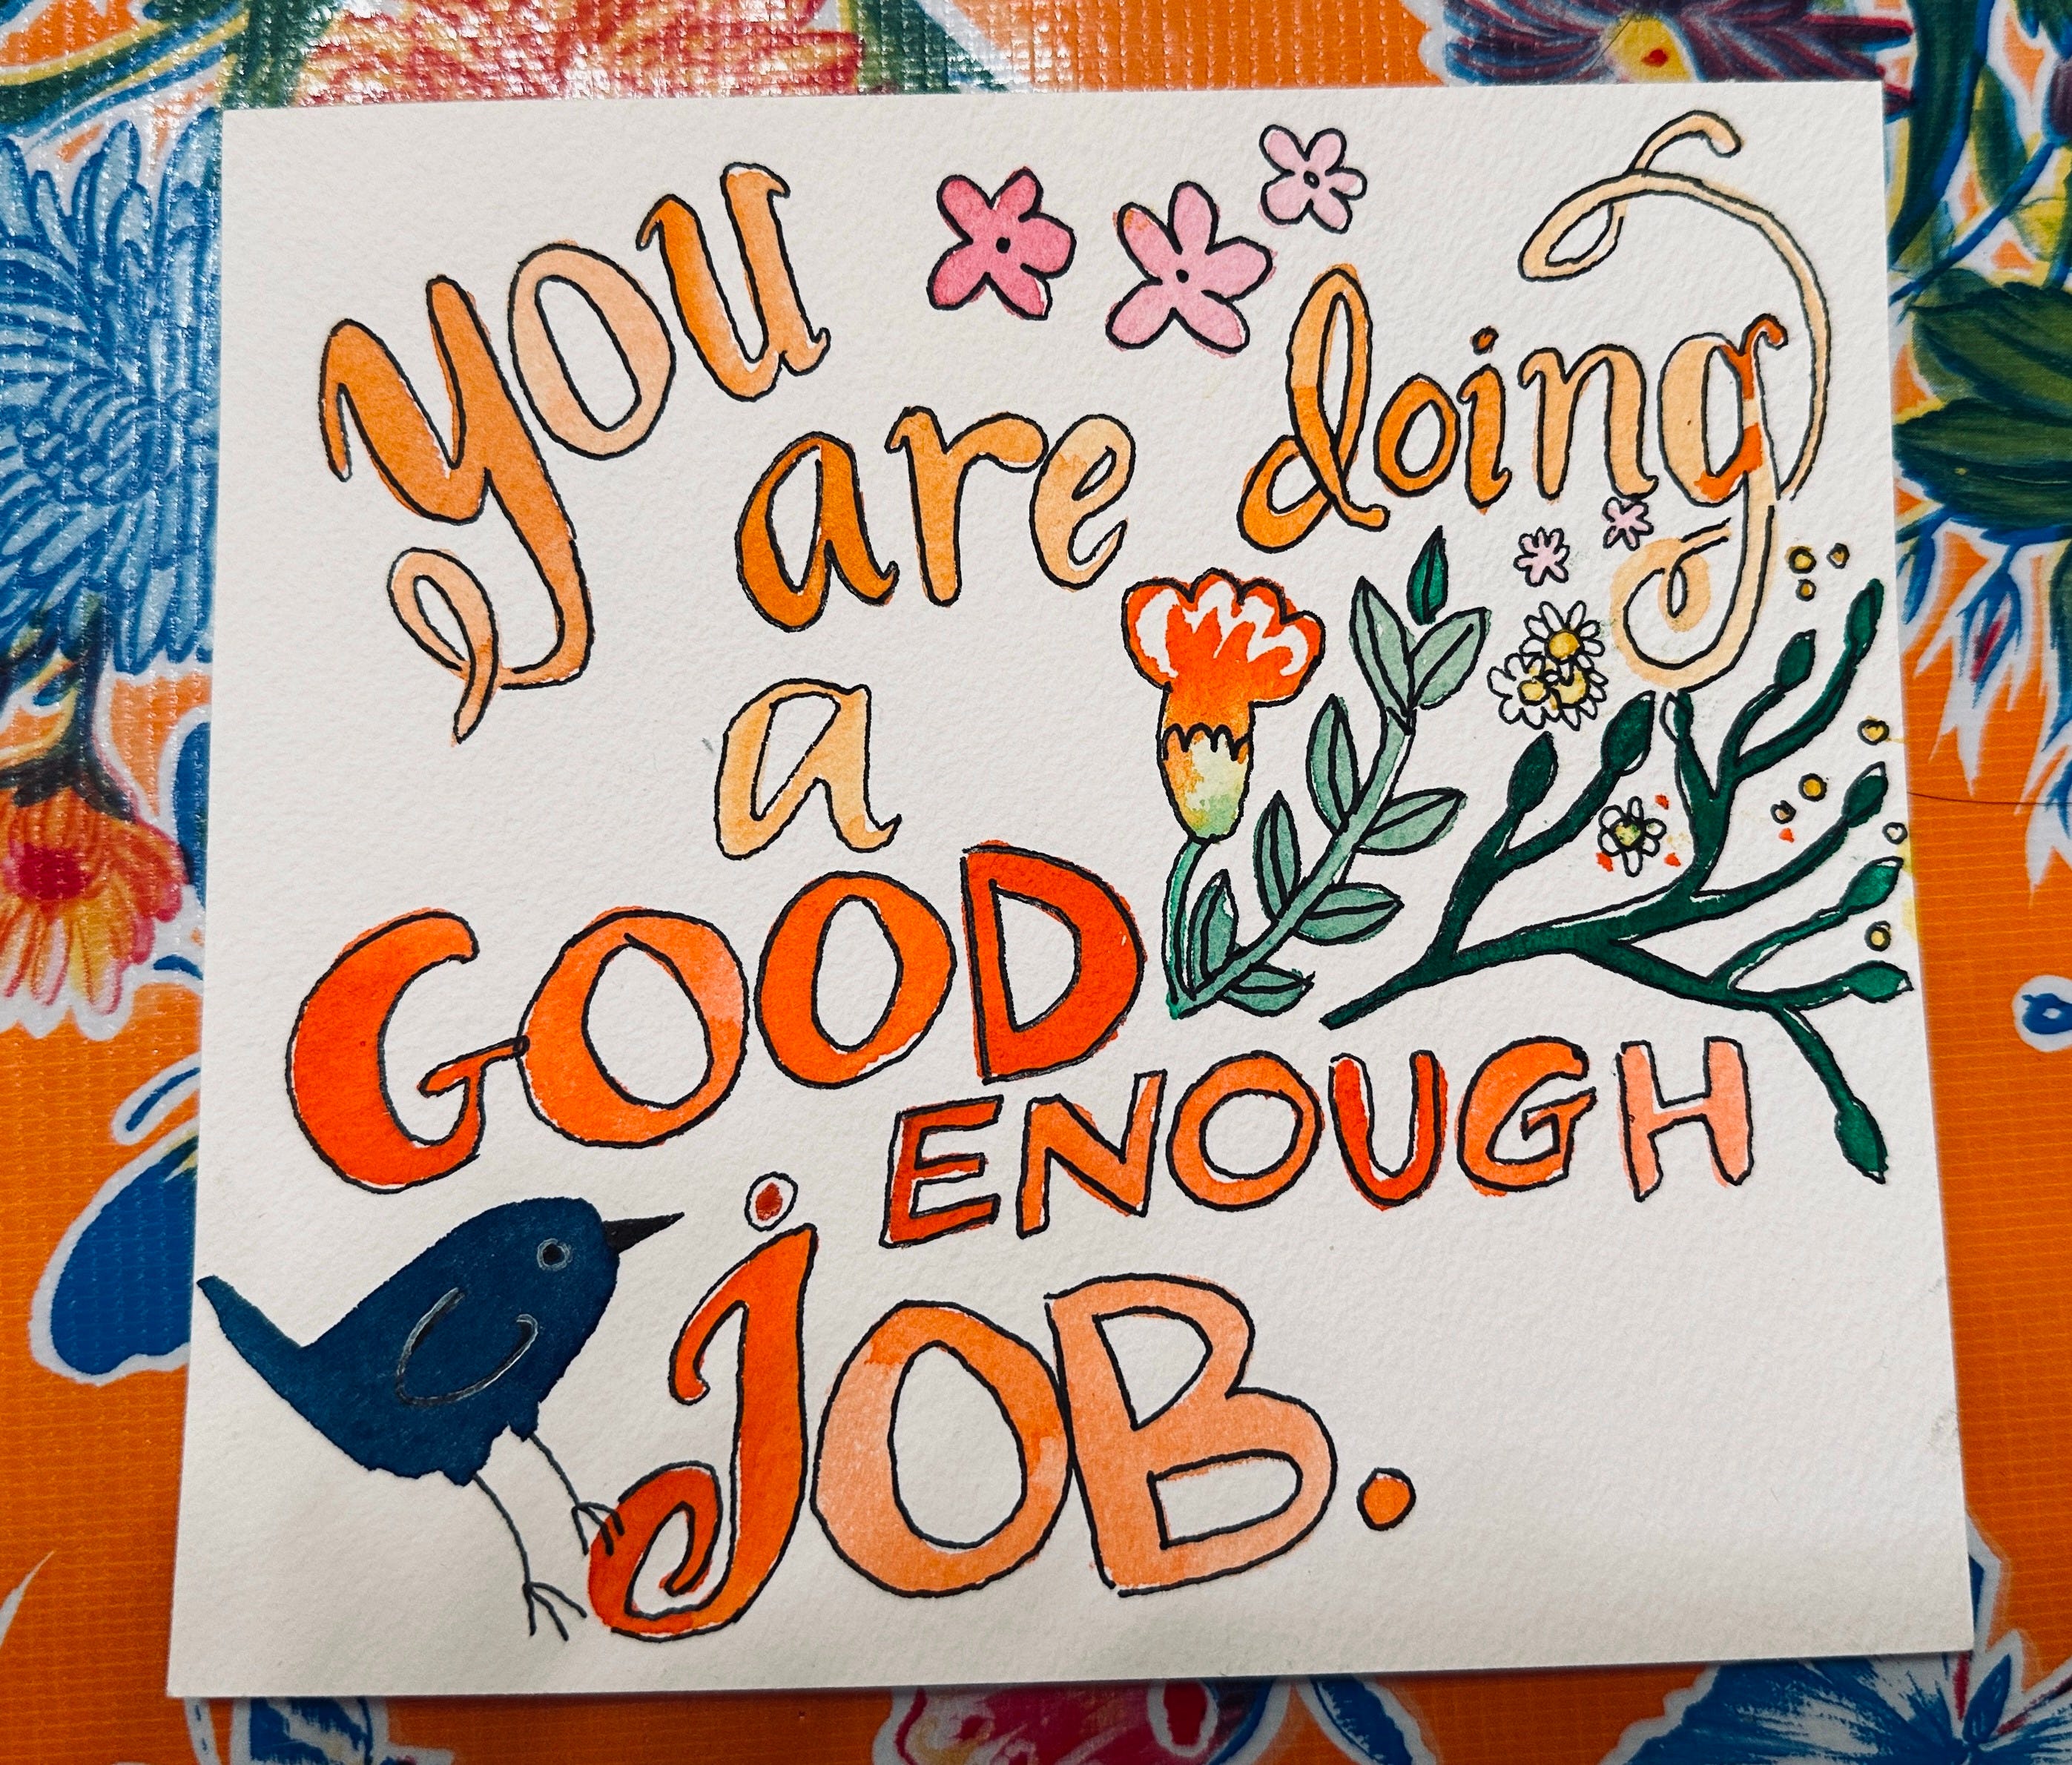 You
are doing
a
GOOD
ENOUGH
JOB.